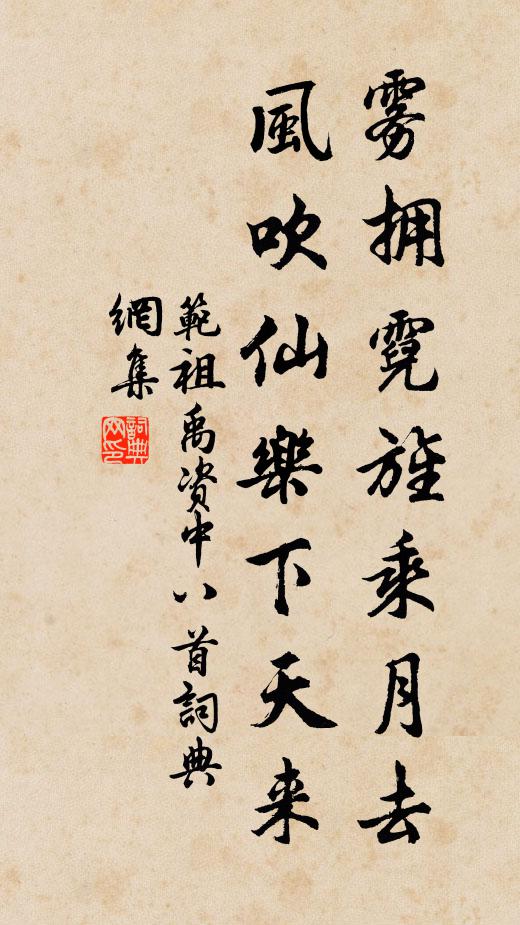 雾拥霓旌乘月去
風吹仙樂下天来
範祖禹资中八首詞典
網集
詞典
网印